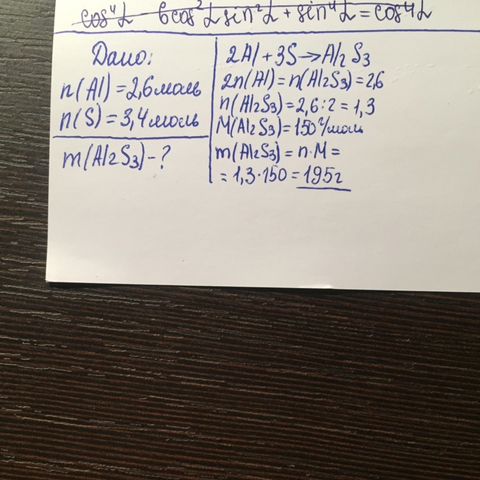 cos⁴α - 6cos²α sin²α + sin⁴α = cos4α
Дано:
n(Al) = 2,6 моль
n(S) = 3,4 моль
m(Al₂S₃) - ?
2Al + 3S → Al₂S₃
2n(Al) = n(Al₂S₃) = 2,6
n(Al₂S₃) = 2,6 : 2 = 1,3
M(Al₂S₃) = 150 г/моль
m(Al₂S₃) = n·M =
= 1,3·150 = 195г